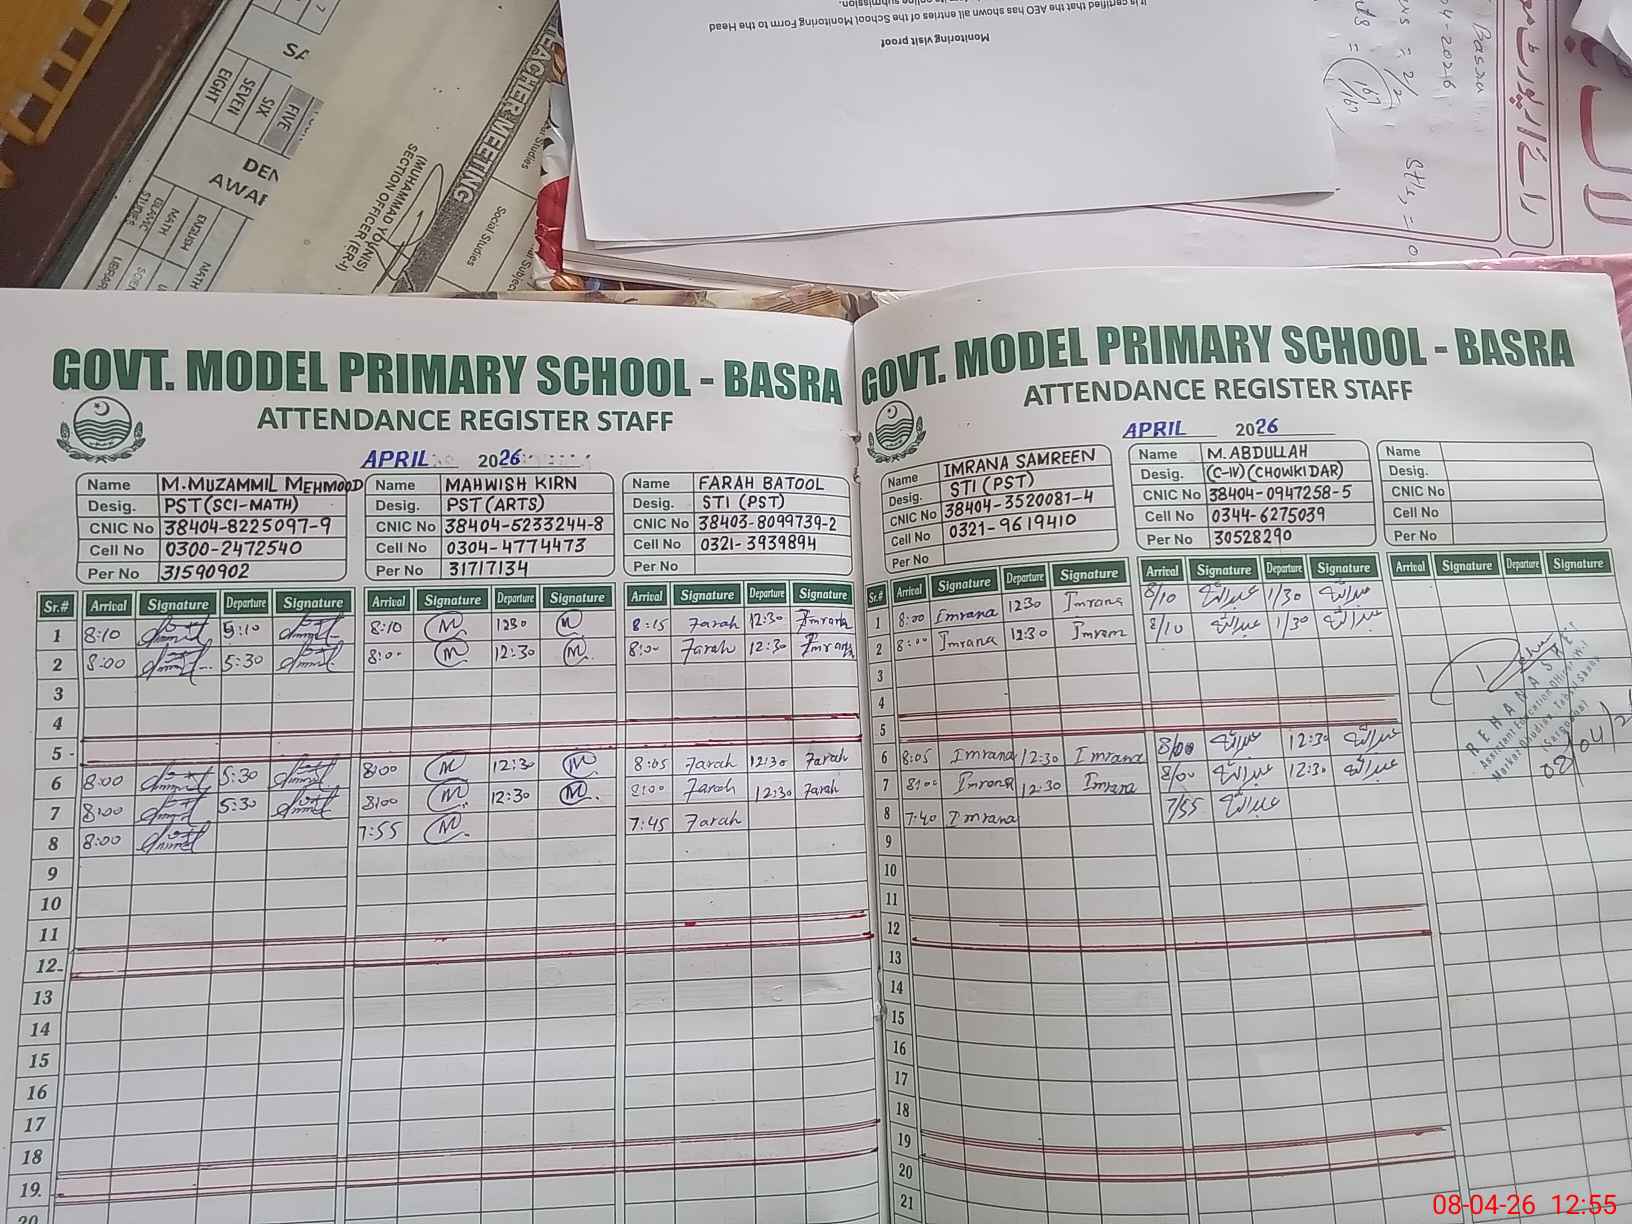 Monitoring visit proof
It is certified that the AEO has shown all entries of the School Monitoring Form to the Head
Basra
04-2026
= 2/2
167/167
Sti, = 0
SA
EIGHT
SEVEN
SIX
FIVE
DEN
AWAR
STUDIES
ISLAMIC
MATH
ENGLISH
MATH
LIBRARY
TEACHER MEETING
(MUHAMMAD YOUNIS)
SECTION OFFICER (ER-I)
Social Studies
GOVT. MODEL PRIMARY SCHOOL - BASRA
ATTENDANCE REGISTER STAFF
APRIL 2026
Name M. MUZAMMIL MEHMOOD
Desig. PST (SCI-MATH)
CNIC No 38404-8225097-9
Cell No 0300-2472540
Per No 31590902
Name MAHWISH KIRN
Desig. PST (ARTS)
CNIC No 38404-5233244-8
Cell No 0304-4774473
Per No 31717134
Name FARAH BATOOL
Desig. STI (PST)
CNIC No 38403-8099739-2
Cell No 0321-3939894
Per No
Sr.# Arrival Signature Departure Signature Arrival Signature Departure Signature Arrival Signature Departure Signature
1 8:10 5:10 8:10 M 1230 M 8:15 Farah 12:30 Imrana
2 8:00 5:30 8:00 M 12:30 M 8:00 Farah 12:30 Imrana
3
4
5
6 8:00 5:30 8:00 M 12:30 M 8:05 Farah 12:30 Farah
7 8:00 5:30 8:00 M 12:30 M 8:00 Farah 12:30 Farah
8 8:00 7:55 M 7:45 Farah
9
10
11
12
13
14
15
16
17
18
19
20
GOVT. MODEL PRIMARY SCHOOL - BASRA
ATTENDANCE REGISTER STAFF
APRIL 2026
Name IMRANA SAMREEN
Desig. STI (PST)
CNIC No 38404-3520081-4
Cell No 0321-9619410
Per No
Name M. ABDULLAH
Desig. (C-IV) (CHOWKIDAR)
CNIC No 38404-0947258-5
Cell No 0344-6275039
Per No 30528290
Name
Desig.
CNIC No
Cell No
Per No
Sr.# Arrival Signature Departure Signature Arrival Signature Departure Signature Arrival Signature Departure Signature
1 8:00 Imrana 1230 Imrana 8/10 عبداللہ 1/30 عبداللہ
2 8:00 Imrana 12:30 Imram 8/10 عبداللہ 1/30 عبداللہ
3
4
5
6 8:05 Imrana 12:30 Imrana 8/00 عبداللہ 12:30 عبداللہ
7 8:00 Imrana 12:30 Imrana 8/00 عبداللہ 12:30 عبداللہ
8 7:40 Imrana 7/55 عبداللہ
9
10
11
12
13
14
15
16
17
18
19
20
21
Assistant Education Officer
08/04/26
08-04-26 12:55